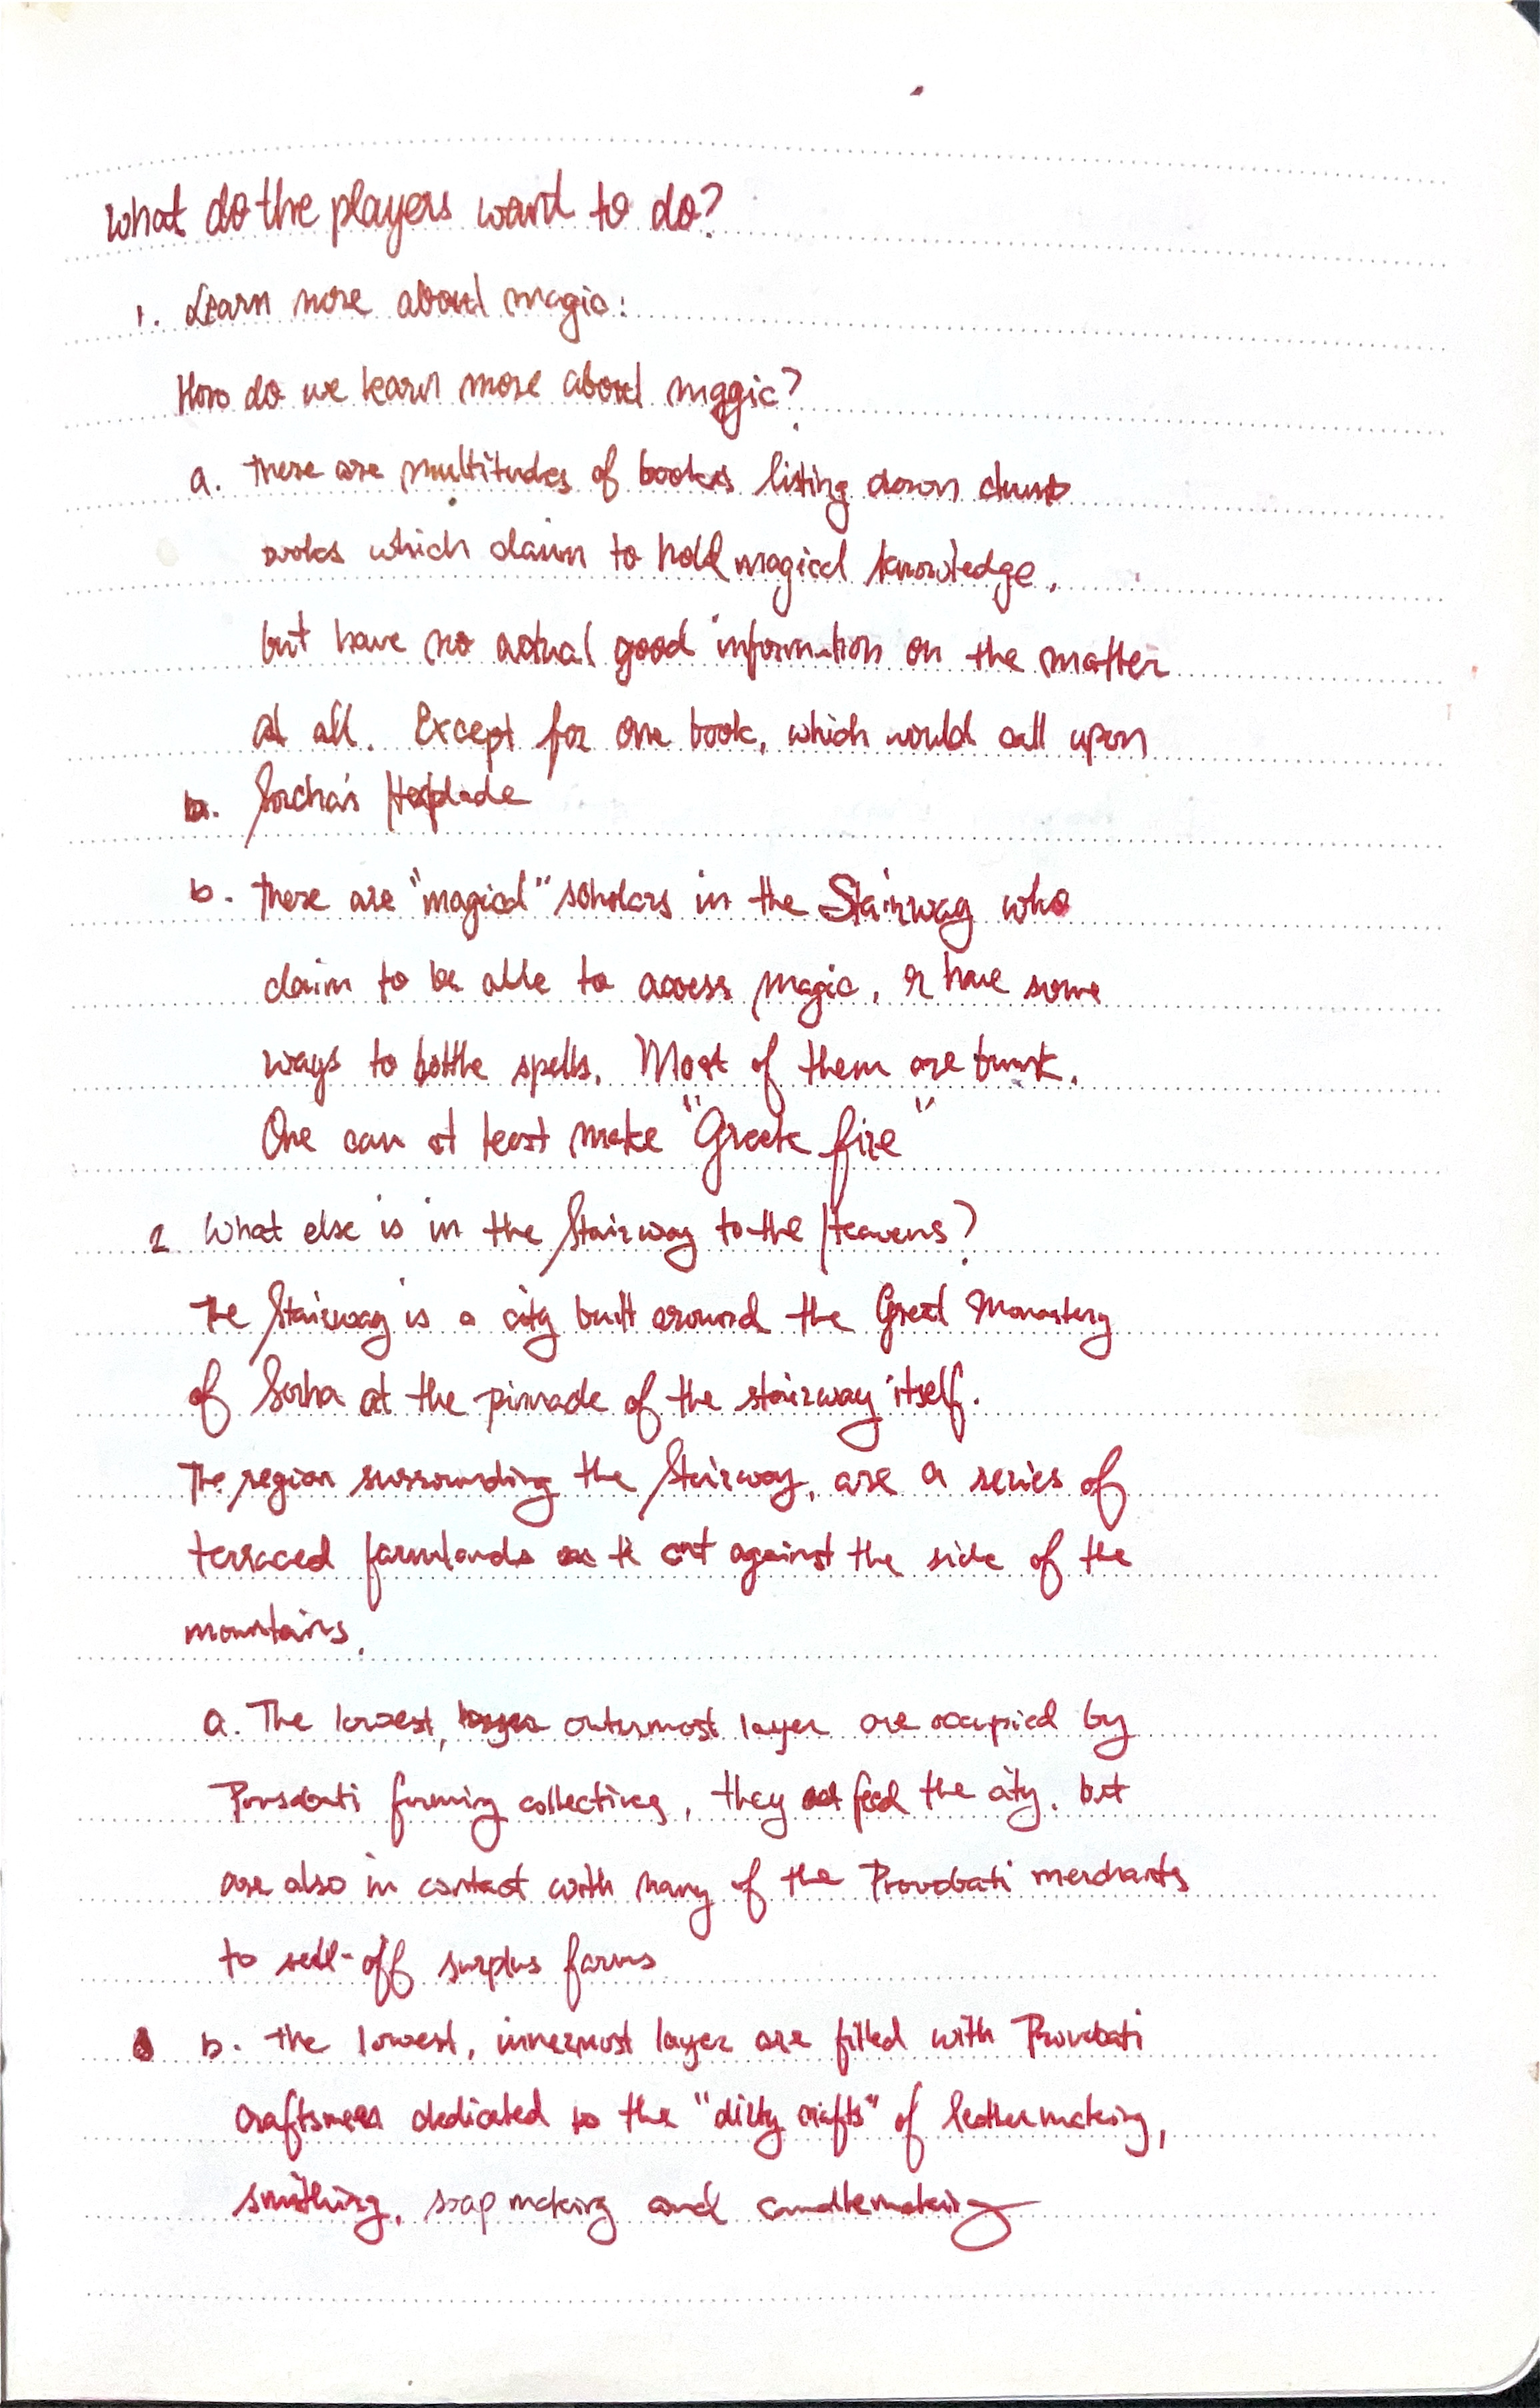 What do the players want to do?
1. Learn more about magic:
How do we learn more about magic?
a. There are multitudes of books listing down dumb
which claim to hold magical knowledge,
but have no actual good information on the matter
at all. Except for one book, which would call upon
b. Sorcha's
b. There are "magical" scholars in the Stairway who
claim to be able to access magic, & have some
ways to bottle spells. Most of them are bunk.
One can at least make "Greek fire"
2 What else is in the Stairway to the Heavens?
The Stairway is a city built around the Great Monastery
of Sorha at the pinnacle of the stairway itself.
The region surrounding the Stairway, are a series of
terraced farmlands cut against the side of the
mountains.
a. The lowest, outermost layer are occupied by
farming collectives, they feed the city, but
are also in contact with many of the Provobati merchants
to sell-off surplus farms
b. The lowest, innermost layer are filled with Provobati
craftsmen dedicated to the "dirty crafts" of leathermaking,
smithing, soap making and candlemaking